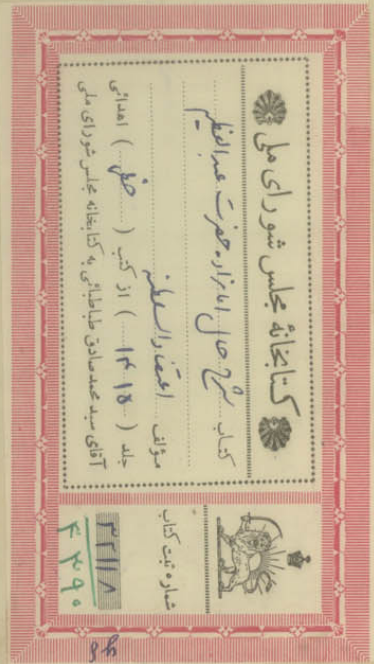 کتابخانهٔ مجلس شورای ملی
کتاب شرح حال امامزاده حضرت عبدالعظیم
مؤلف اعتمادالسلطنه
جلد (۱۴۱۵) از کتب (خطی) اهدائی
آقای سید محمد صادق طباطبائی به کتابخانه مجلس شورای ملی
شماره ثبت کتاب
۳۲۱۱۸
۴۴۹۰